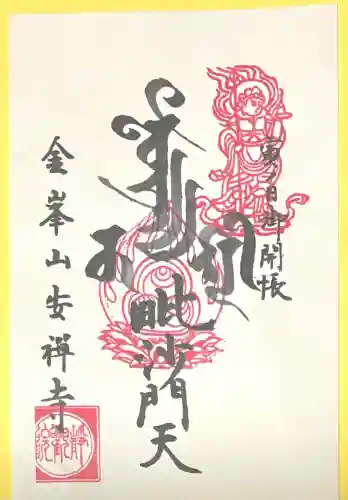 寅ノ日御開帳
毘沙門天
金峯山安禅寺